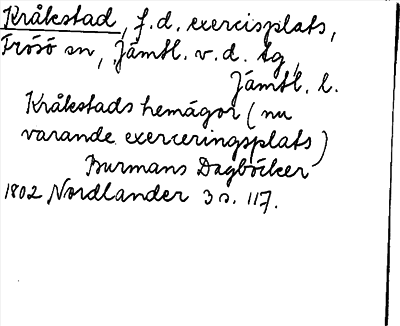 Kråkstad, f.d. exercisplats,
Frösö sn, Jämtl. v. d. tg,
Jämtl. l.
Kråkstads hemägor (nu
varande exerceringsplats)
Burmans Dagböcker
1802 Nordlander 3 s. 117.